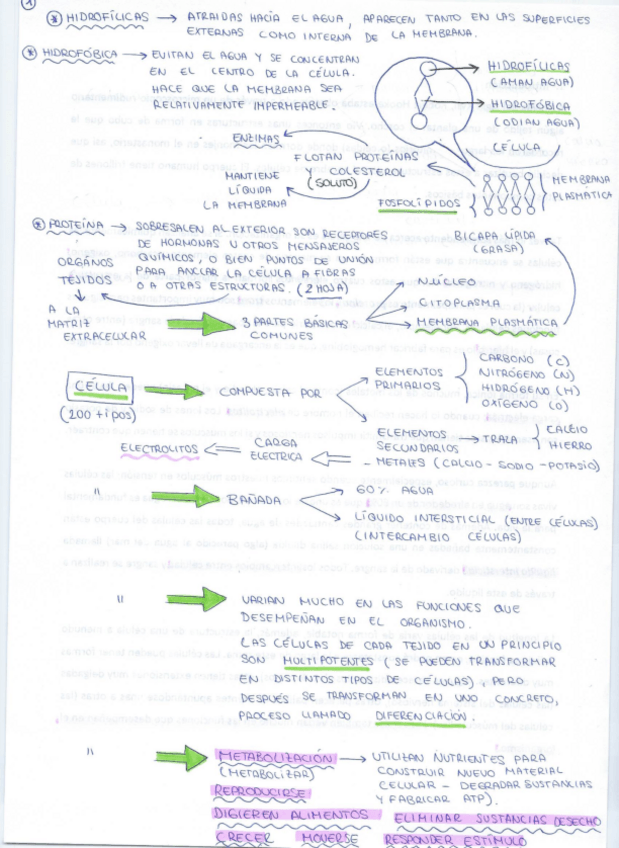 1
* HIDROFÍLICAS → ATRAIDAS HACIA EL AGUA, APARECEN TANTO EN LAS SUPERFICIES
EXTERNAS COMO INTERNA DE LA MEMBRANA.
* HIDROFÓBICA → EVITAN EL AGUA Y SE CONCENTRAN
EN EL CENTRO DE LA CÉLULA.
HACE QUE LA MEMBRANA SEA
RELATIVAMENTE IMPERMEABLE.
HIDROFÍLICAS
(AMAN AGUA)
HIDROFÓBICA
(ODIAN AGUA)
CÉLULA
ENZIMAS
FLOTAN PROTEÍNAS
Y COLESTEROL
(SOLUTO)
MANTIENE
LÍQUIDA
LA MEMBRANA
FOSFOLÍPIDOS
MEMBRANA
PLASMÁTICA
BICAPA LÍPIDA
(GRASA)
* PROTEÍNA → SOBRESALEN AL EXTERIOR SON RECEPTORES
DE HORMONAS U OTROS MENSAJEROS
QUÍMICOS, O BIEN PUNTOS DE UNIÓN
PARA ANCLAR LA CÉLULA A FIBRAS
O A OTRAS ESTRUCTURAS. (2 HOJA)
ORGÁNOS
TEJIDOS
A LA
MATRIZ
EXTRACELULAR
3 PARTES BÁSICAS
COMUNES
NÚCLEO
CITOPLARMA
MEMBRANA PLASMÁTICA
CÉLULA
(200 tipos)
COMPUESTA POR
ELEMENTOS
PRIMARIOS
CARBONO (C)
NITRÓGENO (N)
HIDRÓGENO (H)
OXÍGENO (O)
ELEMENTOS
SECUNDARIOS → TRAZA
CALCIO
HIERRO
- METALES (CALCIO - SODIO - POTASIO)
CARGA
ELECTRICA
ELECTROLITOS
" BAÑADA
60% AGUA
LÍQUIDO INTERSTICIAL (ENTRE CÉLULAS)
(INTERCAMBIO CÉLULAS)
" VARIAN MUCHO EN LAS FUNCIONES QUE
DESEMPEÑAN EN EL ORGANISMO.
LAS CÉLULAS DE CADA TEJIDO EN UN PRINCIPIO
SON MULTIPOTENTES (SE PUEDEN TRANSFORMAR
EN DISTINTOS TIPOS DE CÉLULAS), PERO
DESPUÉS SE TRANSFORMAN EN UNO CONCRETO,
PROCESO LLAMADO DIFERENCIACIÓN.
" METABOLIZACIÓN → UTILIZAN NUTRIENTES PARA
(METABOLIZAR) CONSTRUIR NUEVO MATERIAL
CELULAR - DEGRADAR SUSTANCIAS
Y FABRICAR ATP).
REPRODUCIRSE
DIGIEREN ALIMENTOS ELIMINAR SUSTANCIAS DESECHO
CRECER MOVERSE RESPONDER ESTÍMULO